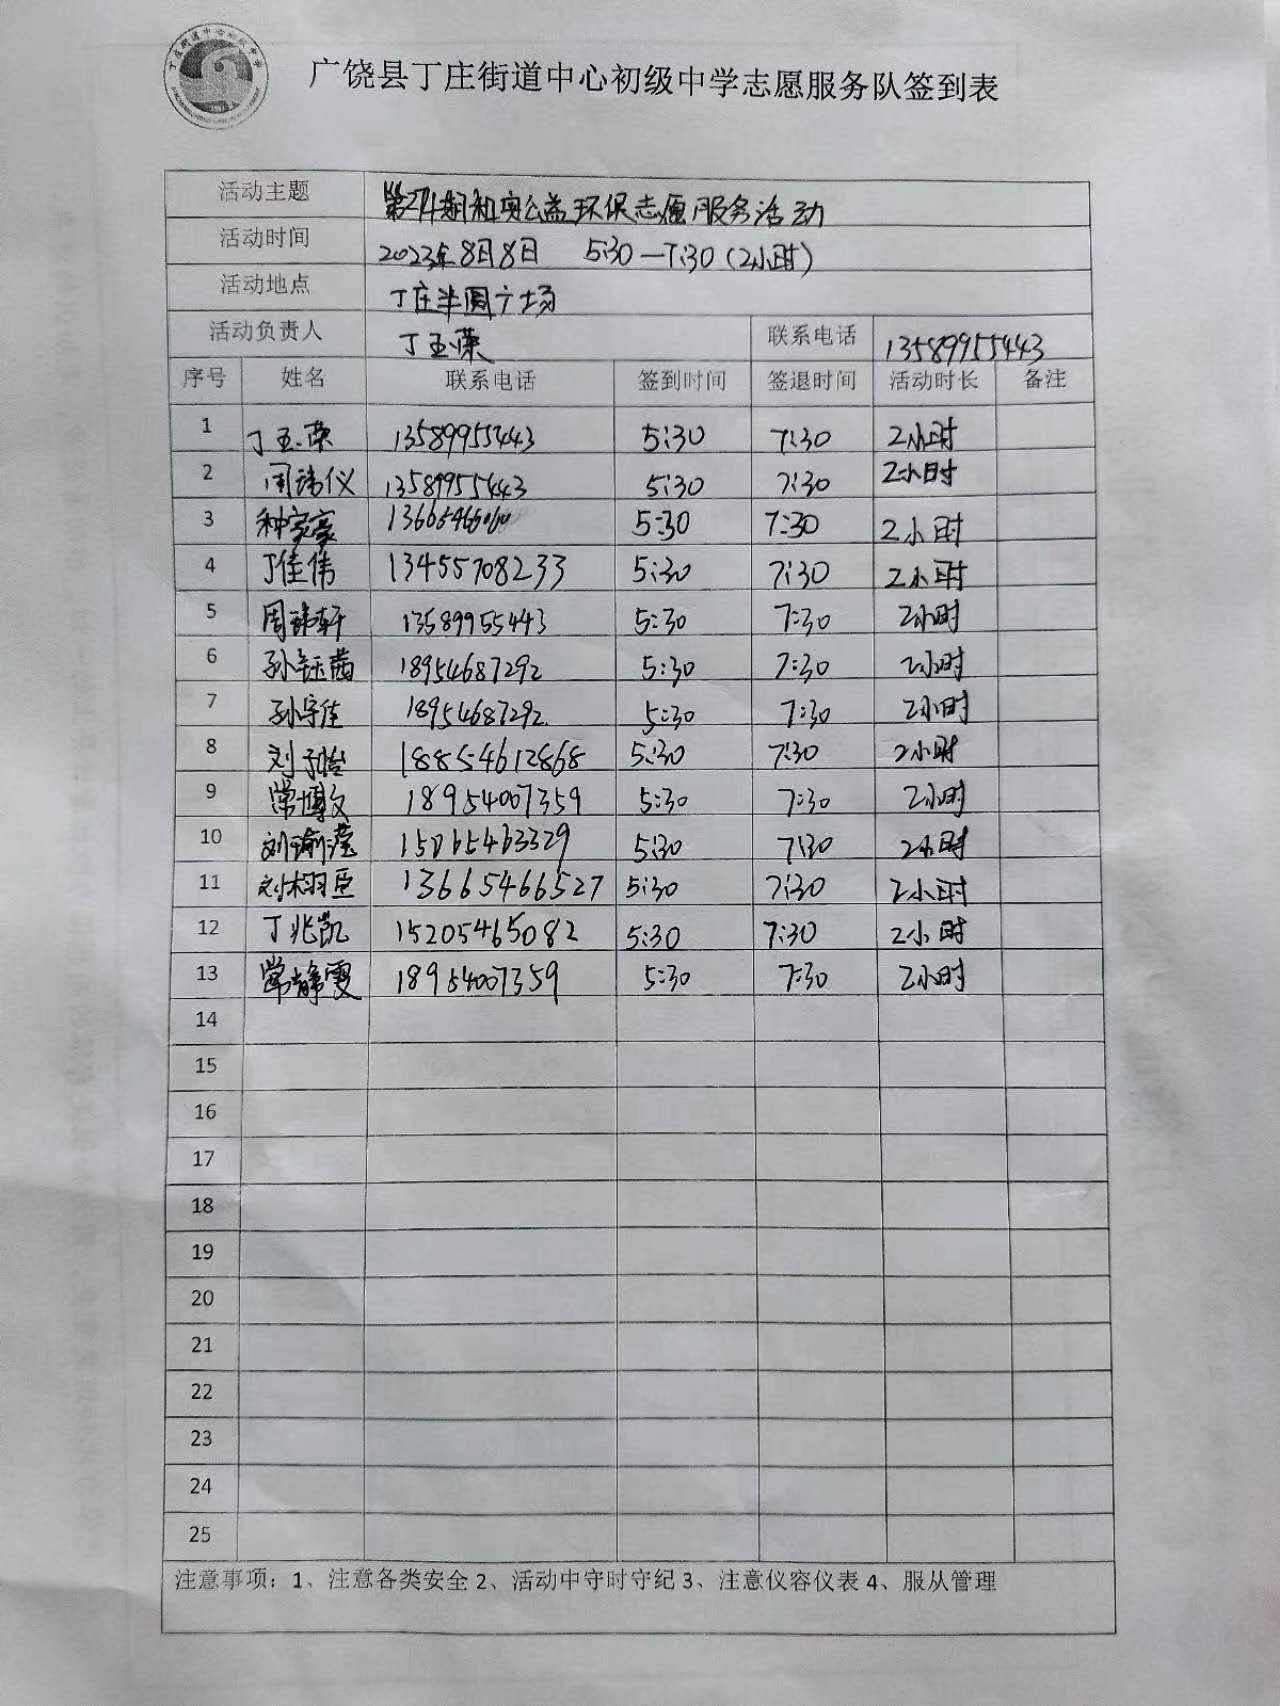 丁庄街道中心初级中学
广饶县丁庄街道中心初级中学志愿服务队签到表
活动主题 公益环保志愿服务活动
活动时间 2023年8月8日 5:30—7:30(2小时)
活动地点 丁庄半圆广场
活动负责人 丁玉荣 联系电话 13589955443
序号 姓名 联系电话 签到时间 签退时间 活动时长 备注
1 丁玉荣 13589955443 5:30 7:30 2小时
2 周祎仪 13589955443 5:30 7:30 2小时
3 种家豪 5:30 7:30 2小时
4 丁佳伟 13455708233 5:30 7:30 2小时
5 周祎轩 13589955443 5:30 7:30 2小时
6 孙钰茜 18954687292 5:30 7:30 2小时
7 孙宇佳 18954687292 5:30 7:30 2小时
8 刘子 18854612868 5:30 7:30 2小时
9 常博文 18954007359 5:30 7:30 2小时
10 刘瑜滢 15065463329 5:30 7:30 2小时
11 刘栩臣 13665466527 5:30 7:30 2小时
12 丁兆凯 15205465082 5:30 7:30 2小时
13 常静雯 18954007359 5:30 7:30 2小时
14
15
16
17
18
19
20
21
22
23
24
25
注意事项：1、注意各类安全 2、活动中守时守纪 3、注意仪容仪表 4、服从管理